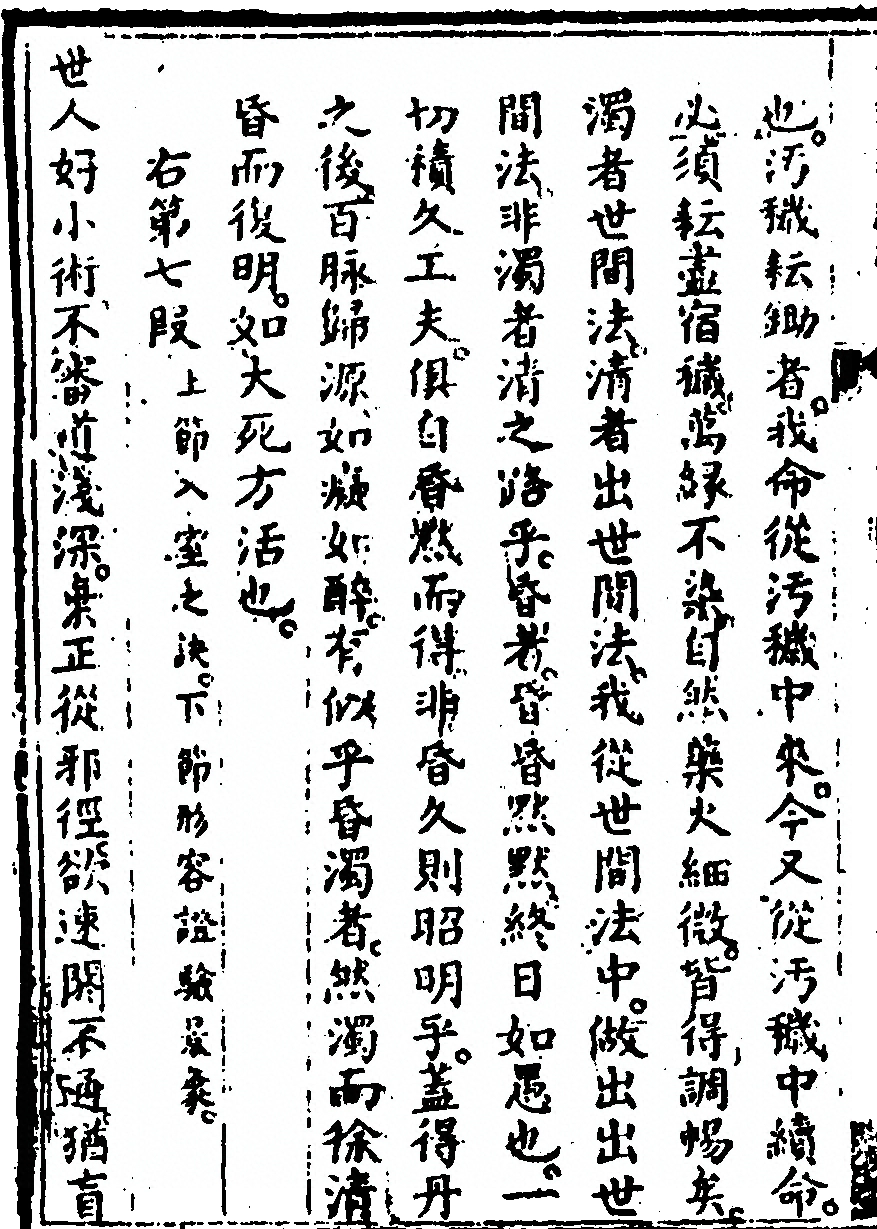 也。汚穢耘鋤者。我命從汚穢中來。今又從汚穢中續命。
必須耘盡宿穢。萬緣不染。自然藥火細微。皆得調暢矣。
濁者世間法。清者出世間法。我從世間法中。做出出世
間法。非濁者清之路乎。昏者。昏昏默默。終日如愚也。一
切積久工夫。俱自昏默而得。非昏久則昭明乎。蓋得丹
之後。百脉歸源。如癡如醉。有似乎昏濁者。然濁而徐清
昏而復明。如大死方活也。
右第七段 上節入室之訣。下節形容證驗景象。
世人好小術。不審道淺深。棄正從邪徑。欲速閼不通。猶盲